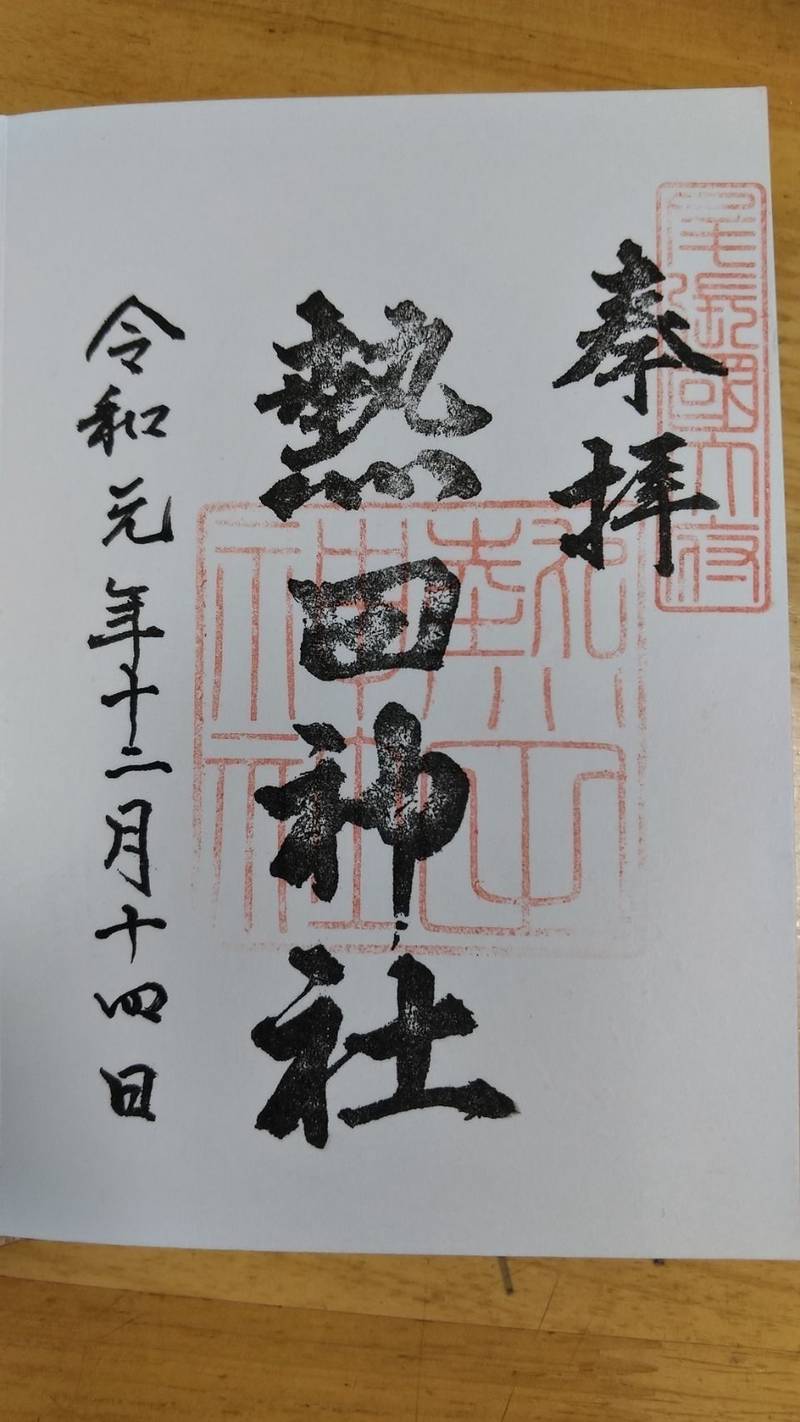 尾張國大府
奉拝
熱田神社
熱田
神社
令和元年十二月十四日